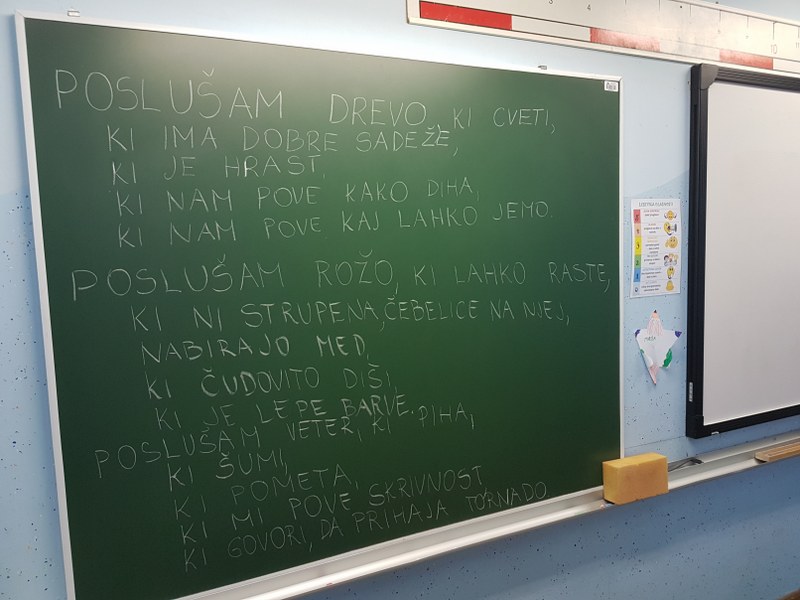 POSLUŠAM DREVO, KI CVETI,
KI IMA DOBRE SADEŽE,
KI JE HRAST,
KI NAM POVE KAKO DIHA,
KI NAM POVE KAJ LAHKO JEMO.
POSLUŠAM ROŽO, KI LAHKO RASTE,
KI NI STRUPENA, ČEBELICE NA NJEJ,
NABIRAJO MED,
KI ČUDOVITO DIŠI,
KI JE LEPE BARVE.
POSLUŠAM VETER, KI PIHA,
KI ŠUMI,
KI POMETA,
KI MI POVE SKRIVNOST,
KI GOVORI, DA PRIHAJA TORNADO